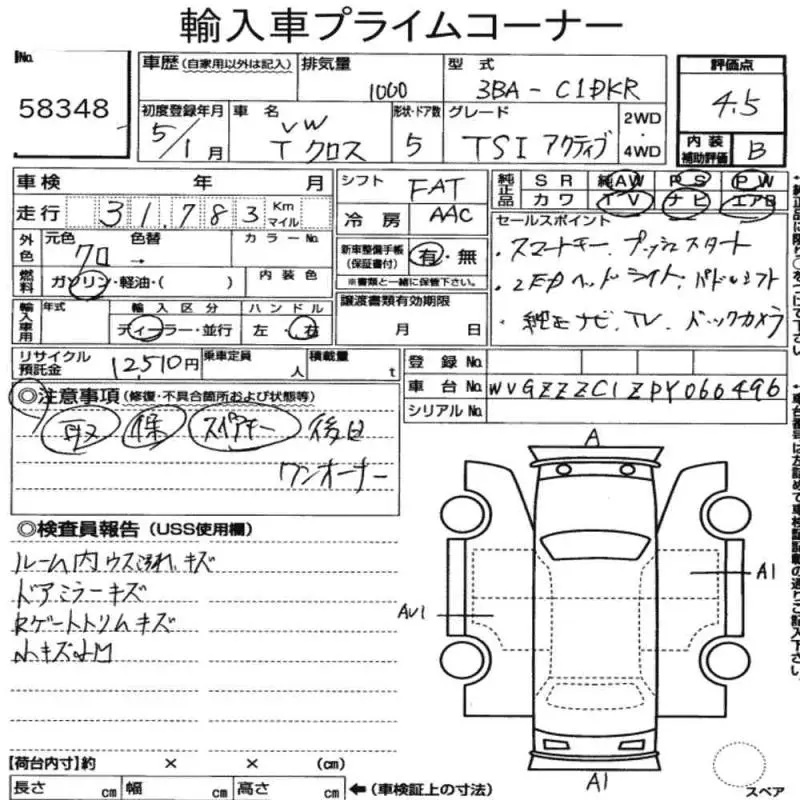 輸入車プライムコーナー
No. 58348
車歴 (自家用以外は記入)
排気量 1000
型式 3BA-C1DKR
評価点 4.5
初度登録年月 5/1月
車名 VW T クロス
形状・ドア数 5
グレード TSI アクティブ
2WD・4WD
内装補助評価 B
車検 年 月
シフト FAT
純正品 SR 純AW PS PW
カワ TV ナビ エアB
走行 31,783 Km マイル
冷房 AAC
セールスポイント
・スマートキー、プッシュスタート
・LEDヘッドライト、パドルシフト
・純正ナビ、TV、バックカメラ
外色 元色 クロ 色替 → カラーNo.
新車整備手帳(保証書付) 有・無
※書類と一緒に保管下さい。
燃料 ガソリン・軽油・( ) 内装色
輸入車用 年式 輸入区分 ディーラー・並行 ハンドル 左・右
譲渡書類有効期限 月 日
リサイクル預託金 12,510円
乗車定員 人
積載量 t
登録No.
車台No. WVGZZZC1ZPY060496
シリアルNo.
◎注意事項 (修復・不具合箇所および状態等)
取 保 スペアキー 後日
ワンオーナー
◎検査員報告 (USS使用欄)
ルーム内ウス汚れ、キズ
ドアミラーキズ
Rゲートトリムキズ
小キズ凹
A
A1
AU1
A1
スペア
【荷台内寸】約 × × (cm)
長さ cm 幅 cm 高さ cm ←(車検証上の寸法)